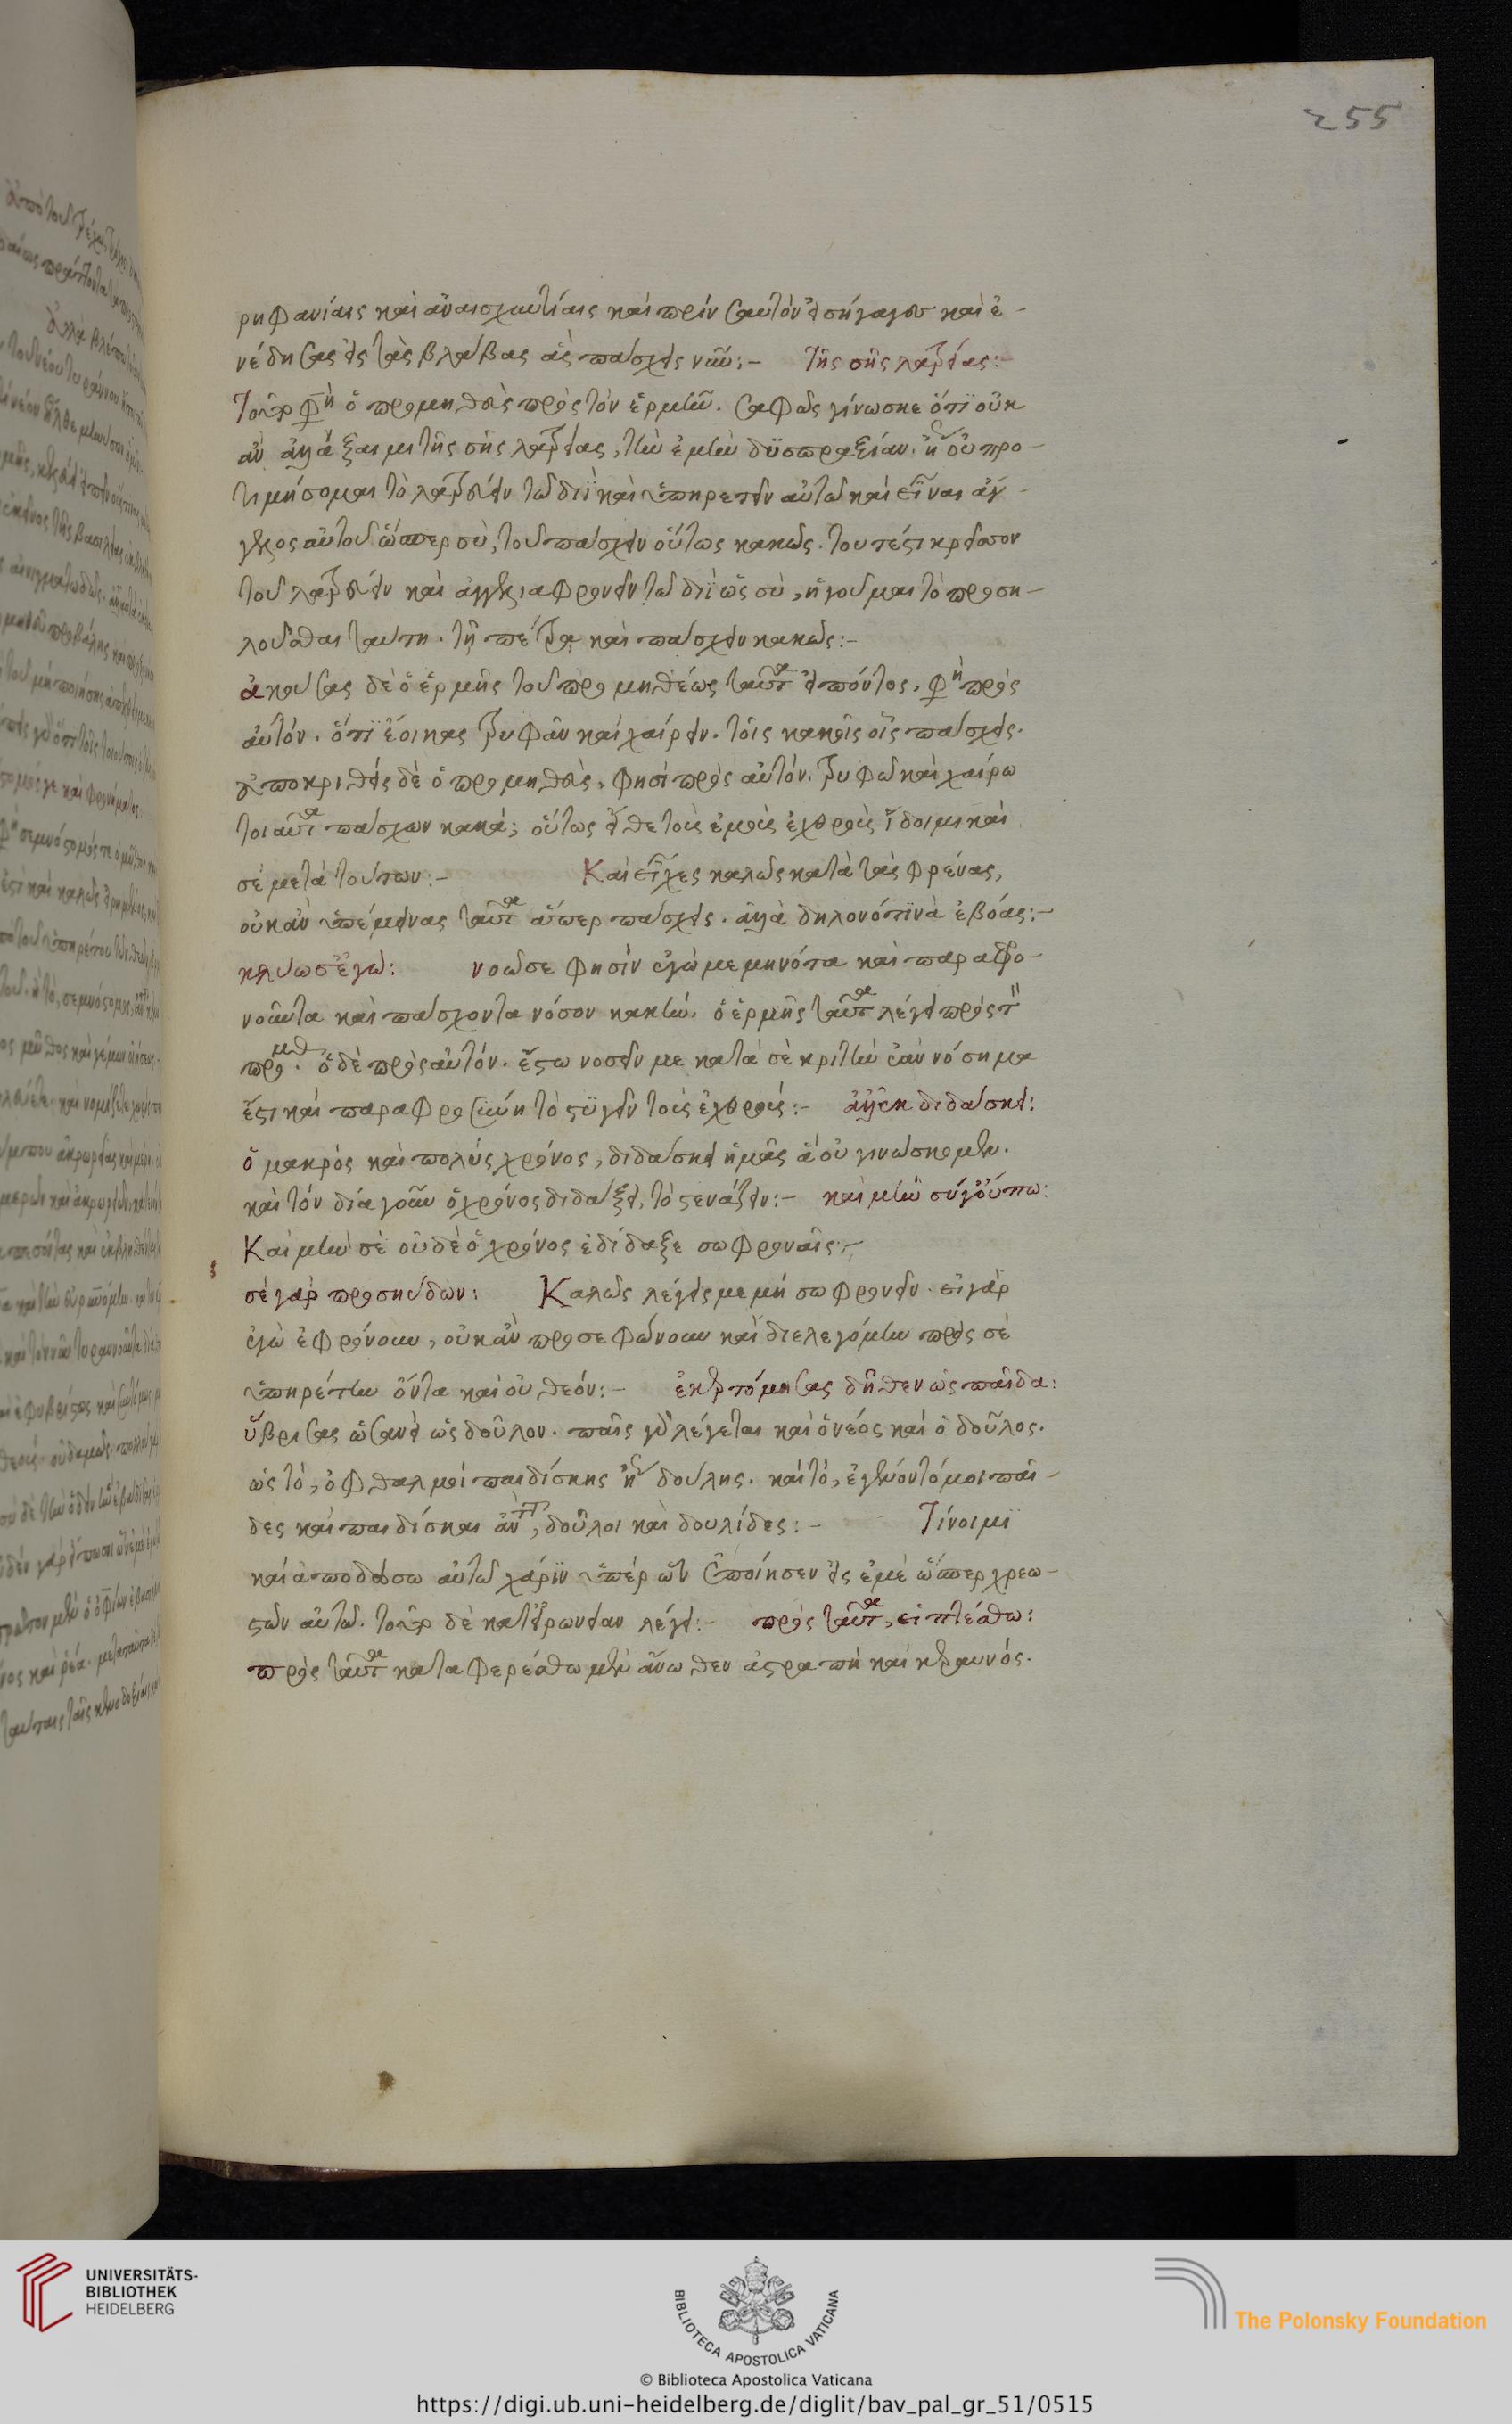 255
ρηφανίαις καὶ ἀναισχυντίαις καὶ πρὶν σαυτὸν εἰσήγαγες καὶ ἐ-
νέδησας εἰς τὰς βλάβας ἃς πάσχεις νῦν:- τῆς σῆς λατρείας:-
Τοῦτο φησὶν ὁ προμηθεὺς πρὸς τὸν ἑρμῆν. σαφῶς γίνωσκε ὅτι οὐκ
ἂν ἀλλάξαιμι τῆς σῆς λατρείας, τὴν ἐμὴν δυσπραξίαν. ἤγουν οὐ προ-
τιμήσομαι τὸ λατρεύειν τῶ διῒ καὶ ὑπηρετεῖν αὐτῶ καὶ εἶναι ἄγ-
γελος αὐτοῦ ὥσπερ σὺ, τοῦ πάσχειν οὕτως κακῶς. τουτέστι κρεῖσσον
τοῦ λατρεύειν καὶ ἀγγελιαφρονεῖν τῶ διῒ ὡς σὺ, ἡγοῦμαι τὸ προση-
λοῦσθαι ταύτη. τῆ πέτρα καὶ πάσχειν κακῶς:-
ἀκούσας δὲ ὁ ἑρμῆς τοῦ προμηθέως ταῦτα εἰπόντος. φησὶ πρὸς
αὐτόν. ὅτι ἔοικας τρυφᾶν καὶ χαίρειν. τοῖς κακοῖς οἷς πάσχεις.
ἀποκριθεὶς δὲ ὁ προμηθεὺς. φησὶ πρὸς αὐτόν. τρυφῶ καὶ χαίρω
τοιαῦτα πάσχων κακά; οὕτως εἴθε τοὺς ἐμοὺς ἐχθροὺς ἴδοιμι καὶ
σὲ μετὰ τούτων:- Καὶ εἶχες καλῶς κατὰ τὰς φρένας,
οὐκ ἂν ὑπέμεινας ταῦτα ἅπερ πάσχεις. ἀλλὰ δηλονότι νὰ ἐβόας:-
κλύω σ' ἐγώ: νοῶ σε φησὶν ἐγὼ μεμηνότα καὶ παραφρο-
νοῦντα καὶ πάσχοντα νόσον κακήν. ὁ ἑρμῆς ταῦτα λέγει πρὸς τὸν
προμθ. ὁ δὲ πρὸς αὐτόν. ἔστω νοσεῖν με κατὰ σὲ κριτὴν ἐὰν νόσημα
ἐστὶ καὶ παραφροσύνη τὸ στυγεῖν τοὺς ἐχθρούς:- ἀλλ' ἐκδιδάσκει:
ὁ μακρὸς καὶ πολὺς χρόνος, διδάσκει ἡμᾶς ἃ οὐ γινώσκομεν.
καὶ τὸν δία γοῦν ὁ χρόνος διδάξει, τὸ στενάζειν:- καὶ μὴν σύ γ' οὔπω:
Καὶ μὴν σὲ οὐδὲ ὁ χρόνος ἐδίδαξε σωφρονεῖν:-
σὲ γὰρ προσηύδων: Καλῶς λέγεις με μὴ σωφρονεῖν. εἰ γὰρ
ἐγὼ ἐφρόνουν, οὐκ ἂν προσεφώνουν καὶ διελεγόμην πρὸς σὲ
ὑπηρέτην ὄντα καὶ οὐ θεόν:- ἐκερτόμησας δῆθεν ὡς παῖδα:
ὕβρισας ὡσανεὶ ὡς δοῦλον. παῖς γὰρ λέγεται καὶ ὁ νέος καὶ ὁ δοῦλος.
ὡς τὸ, ὀφθαλμοὶ παιδίσκης ἤγουν δούλης. καὶ τό, ἐγένοντό μοι παῖ-
δες καὶ παιδίσκαι ἀντὶ, δοῦλοι καὶ δουλίδες:- τίνοιμι
καὶ ἀποδώσω αὐτῶ χάριν ὑπὲρ ὧν ἐποίησεν εἰς ἐμὲ ὥσπερ χρεω-
στῶν αὐτῶ. τοῦτο δὲ κατ' εἰρωνείαν λέγει:- πρὸς ταῦτα, ῥιπτέσθω:
πρὸς ταῦτα καταφερέσθω μὲν ἄνωθεν ἀστραπὴ καὶ κεραυνός.
UNIVERSITÄTS-
BIBLIOTHEK
HEIDELBERG
BIBLIOTECA APOSTOLICA VATICANA
The Polonsky Foundation
© Biblioteca Apostolica Vaticana
https://digi.ub.uni-heidelberg.de/diglit/bav_pal_gr_51/0515